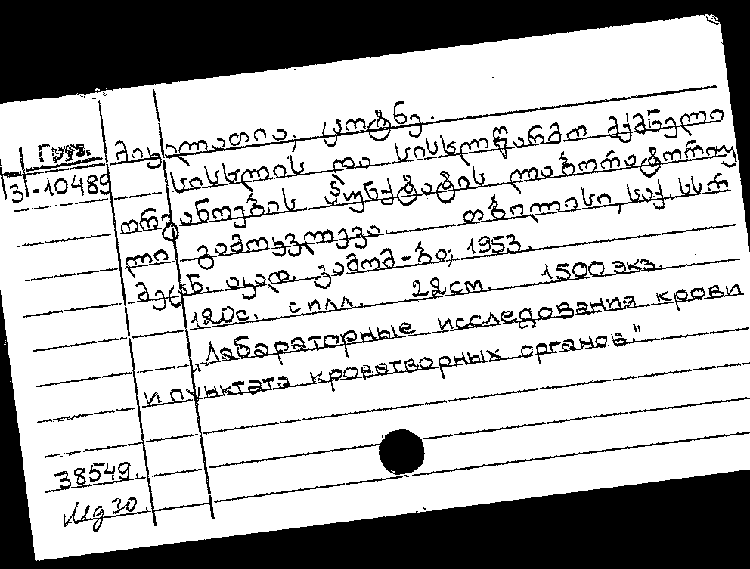 Груз. მიყელათია, სოფნე.
3-10489 სისხლის და სისხლწარმო მქმნელი
ორგანოების პუნქტატის ლაბორატორიუ
ლი გამოკვლევა. თბილისი, საქ. სსრ
მეცნ. აკად. გამომ-ბა, 1953.
120с. с илл. 22см. 1500 экз.
„Лабораторные исследования крови
и пунктата кроветворных органов."
38549.